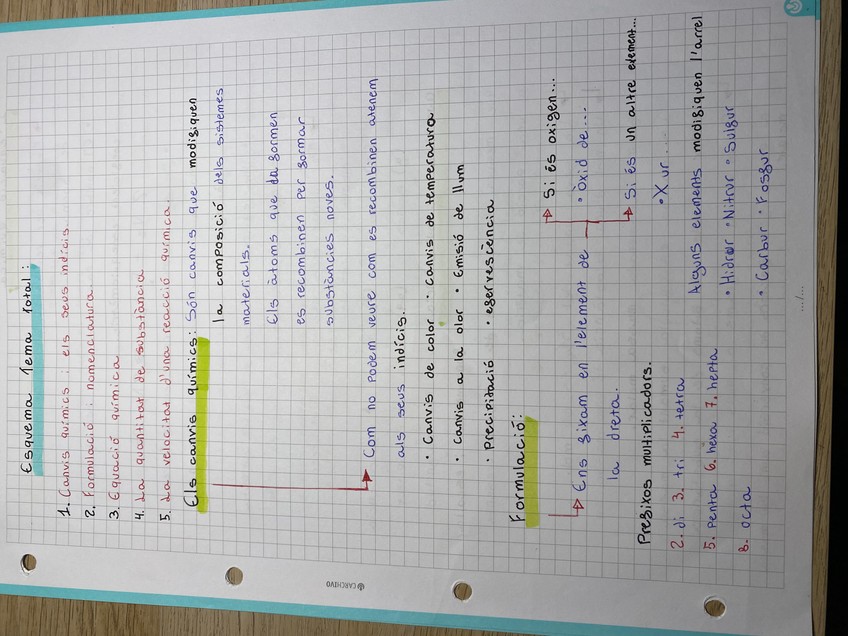 Esquema Tema Total:
1. Canvis químics i els seus indicis.
2. Formulació i nomenclatura.
3. Equació química
4. La quantitat de substància
5. La velocitat d'una reacció química.
Els canvis químics: Són canvis que modifiquen
la composició dels sistemes
materials.
Els àtoms que formen
es recombinen per formar
substàncies noves.
Com no podem veure com es recombinen atenem
als seus indícis.
• Canvis de color • canvis de temperatura
• canvis a la olor • Emisió de llum
• Precipitació • efervescència
Formulació:
Ens fixam en l'element de
la dreta.
Si és oxigen...
• Òxid de...
Si és un altre element...
• X ur...
Prefixos multiplicadors.
2. di 3. tri 4. tetra
5. Penta 6. hexa 7. hepta
8. octa
Alguns elements modifiquen l'arrel
• Hidrur • Nitrur • Sulfur
• Carbur • Fosfur
.../...
CARCHIVO